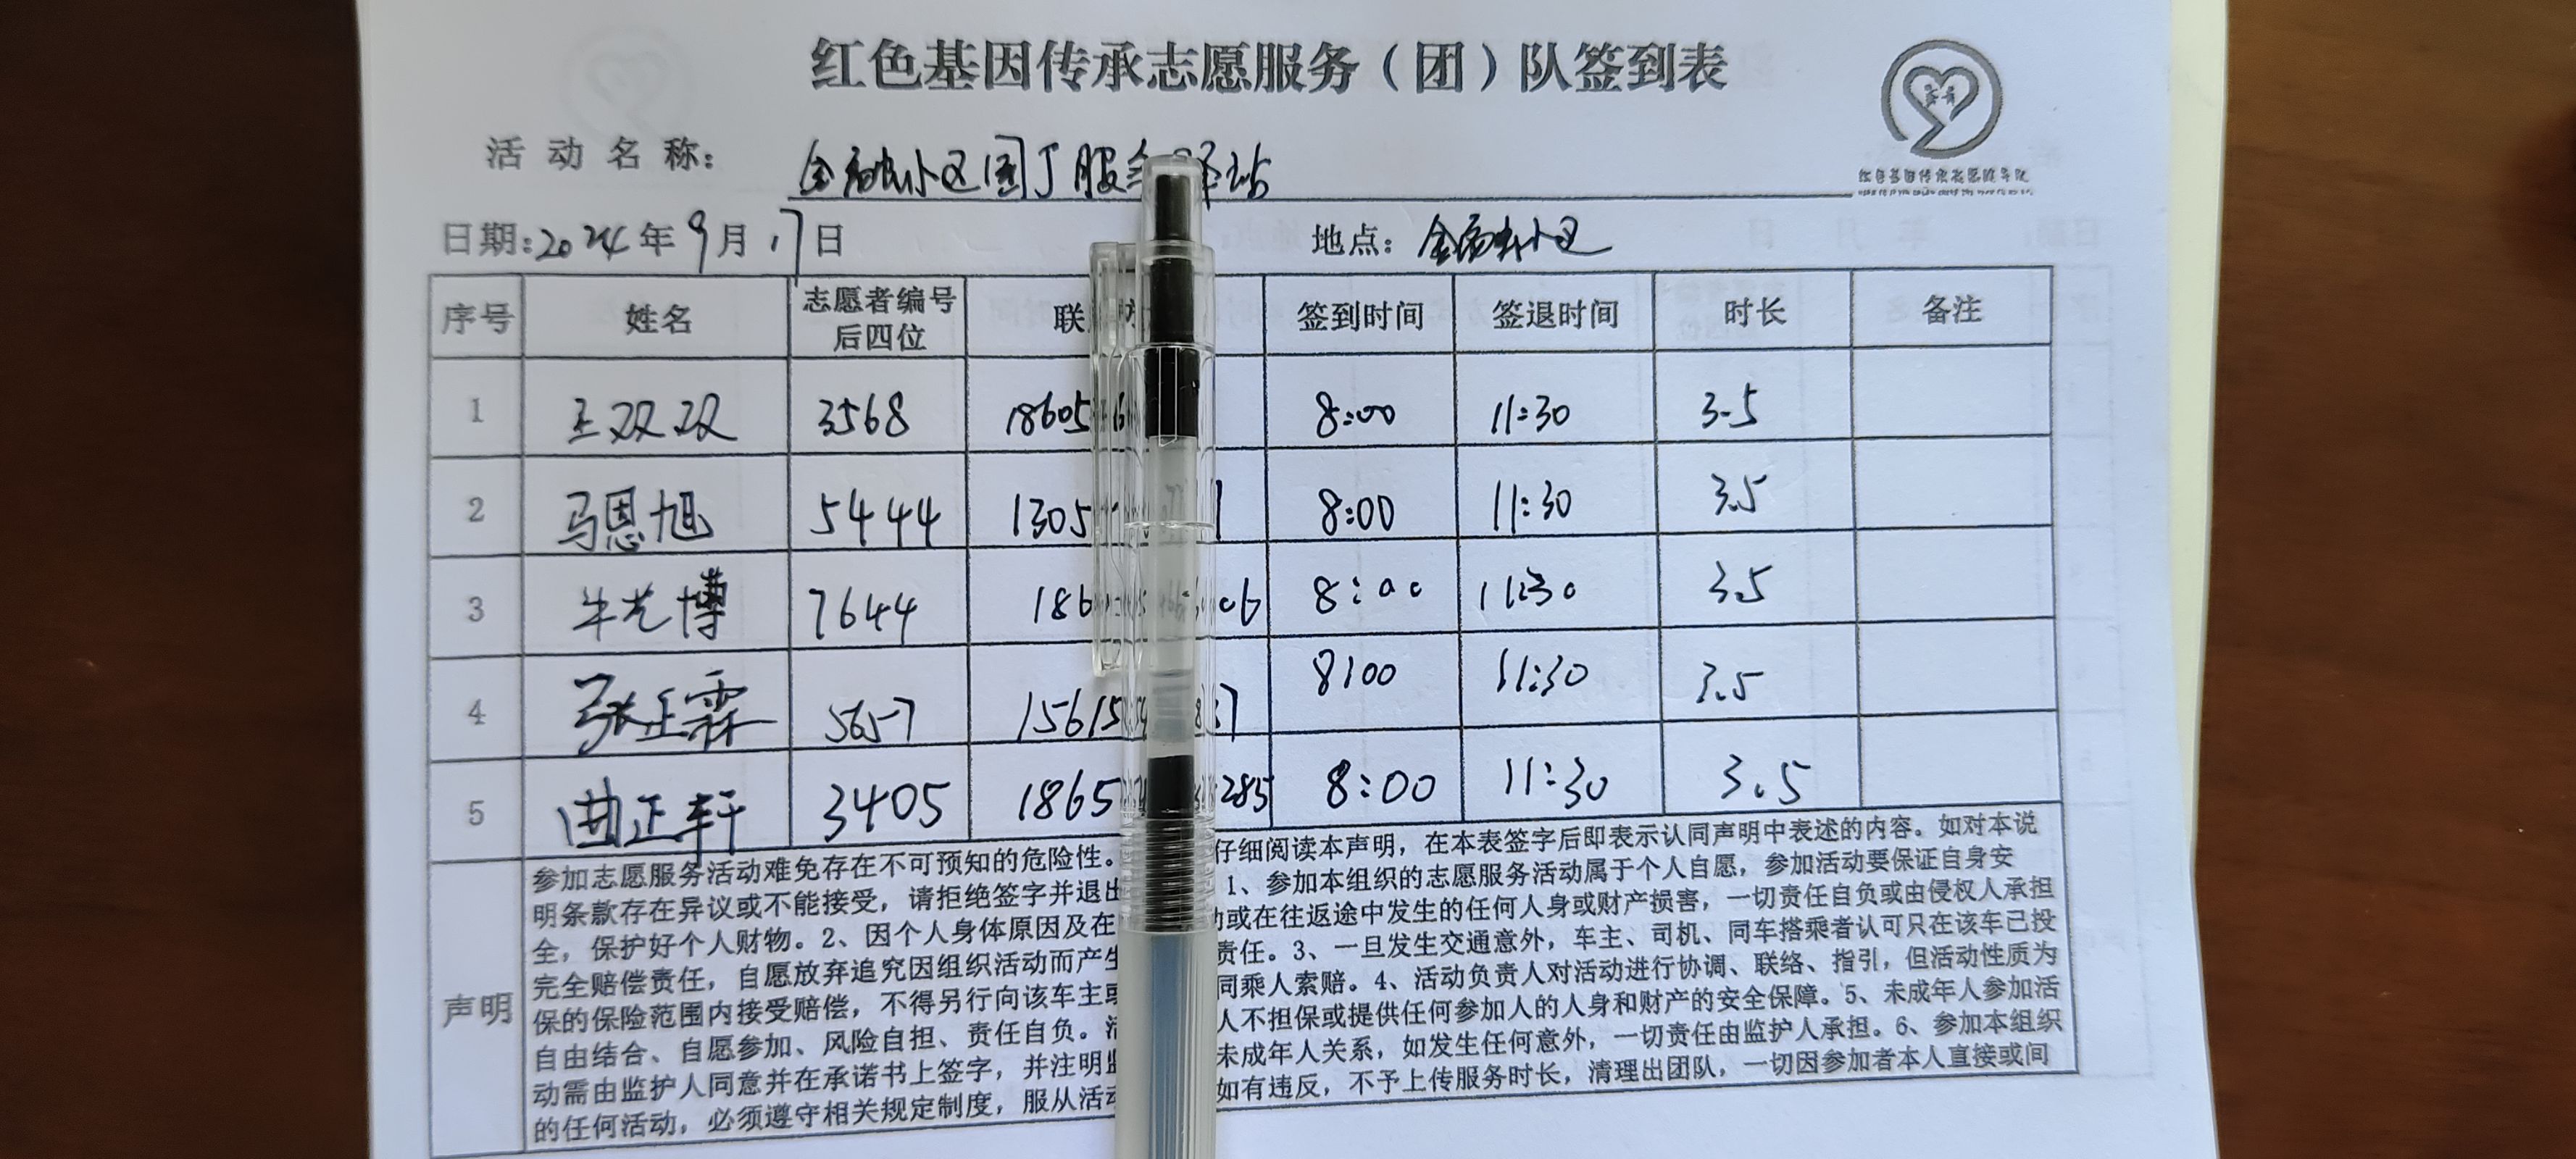 红色基因传承志愿服务（团）队签到表
活动名称： 小区园丁服 站
日期:2024年9月17日 地点： 小区
序号 姓名 志愿者编号后四位 联 签到时间 签退时间 时长 备注
1 王双双 3568 18605 8:00 11:30 3.5
2 马恩旭 5444 1305 8:00 11:30 3.5
3 牛艺博 7644 186 06 8:00 11:30 3.5
4 张正霖 5657 15615 7 8:00 11:30 3.5
5 曲正轩 3405 1865 285 8:00 11:30 3.5
声明
参加志愿服务活动难免存在不可预知的危险性。 仔细阅读本声明，在本表签字后即表示认同声明中表述的内容。如对本说
明条款存在异议或不能接受，请拒绝签字并退出 1、参加本组织的志愿服务活动属于个人自愿，参加活动要保证自身安
全，保护好个人财物。2、因个人身体原因及在 动或在往返途中发生的任何人身或财产损害，一切责任自负或由侵权人承担
完全赔偿责任，自愿放弃追究因组织活动而产生 责任。3、一旦发生交通意外，车主、司机、同车搭乘者认可只在该车已投
保的保险范围内接受赔偿，不得另行向该车主或 同乘人索赔。4、活动负责人对活动进行协调、联络、指引，但活动性质为
自由结合、自愿参加、风险自担、责任自负。活 人不担保或提供任何参加人的人身和财产的安全保障。5、未成年人参加活
动需由监护人同意并在承诺书上签字，并注明监 未成年人关系，如发生任何意外，一切责任由监护人承担。6、参加本组织
的任何活动，必须遵守相关规定制度，服从活动 如有违反，不予上传服务时长，清理出团队，一切因参加者本人直接或间